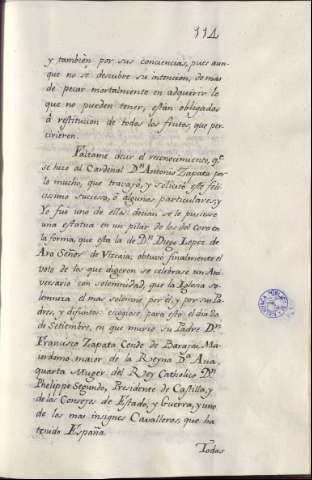 114
y tambien por sus conciencias, pues aun-
que no se descubre su intencion, demas
de pecar mortalmente en adquirir lo
que no pueden tener, están obligados
á restitucion de todos los frutos, que per-
civieren.
Faltame decir el reconocimiento, q.e
se hizo al Cardenal D.n Antonio Zapata por
lo mucho, que trabajó, y solicitó este feli-
cissimo sucesso, ó algunos particulares, y
Yo fui uno de ellos decian se le pusiese
una estatua en un pilar de los del coro en
la forma, que esta la de D.n Diego Lopez de
Aro Señor de Vizcaia: obtuvó finalmente el
voto de los que digeron se celebrase un Ani-
versario con solemnidad, que la Iglesia so-
lemniza el mas solemne por él, y por sus Pa-
dres, y difuntos: escogiose para esto el dia
de Setiembre, en que murió su Padre D.n
Francisco Zapata Conde de Barajas Ma-
iordomo maior de la Reyna D.a Ana,
quarta Muger del Rey Catholico D.n
Phelippe Segundo, Presidente de Castilla, y
de los Consejos de Estado, y Guerra, y uno
de los mas insignes Cavalleros, que ha
tenido España.
Todas